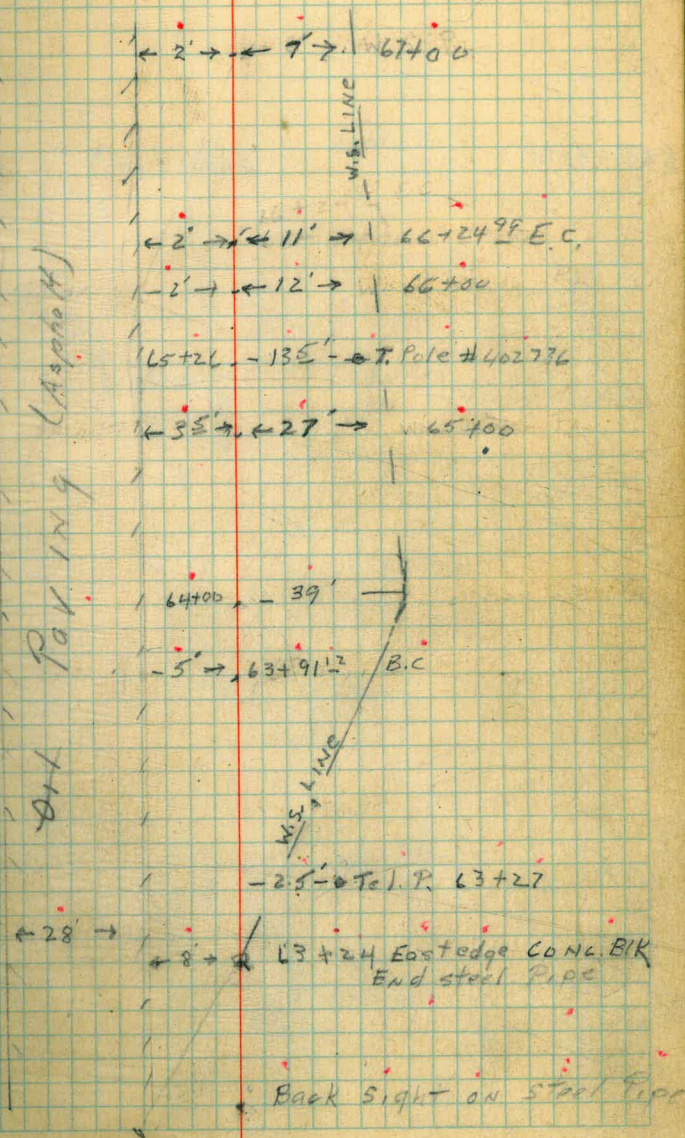 ← 2' → ← 7' → 67+00
W.S. LINE
← 2' → ← 11' → 66+24 99 E.C.
- 2' → ← 12' → 66+00
65+26 - 13 5' - T. Pole # 402736
← 3 5' → ← 27' → 65+00
64+00 - 39'
- 5' → 63+91 12 B.C
W.S. LINE
- 2.5' - Tel. P. 63+27
← 28' →
← 8' → 63+24 East edge CONC. BlK
End steel Pipe
Back Sight on steel Pipe
Paving (Asphalt)